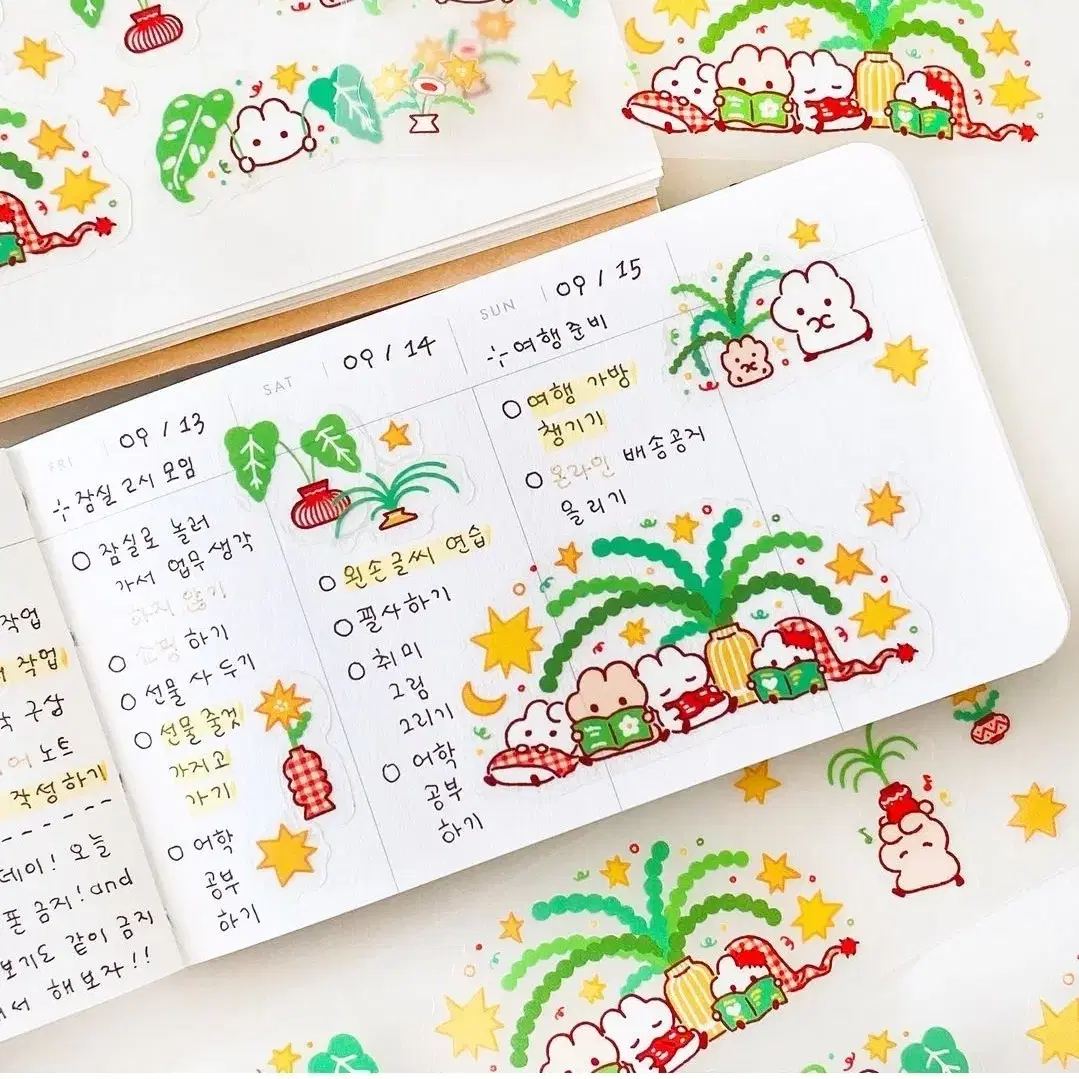 작업
작업
구상
노트
작성하기
데이! 오늘
폰 금지! and
보기도 같이 금지
해보자!!
FRI
09 / 13
잠실 2시 모임
잠실로 놀러
가서 업무생각
하지 않기
쇼핑 하기
선물 사 두기
선물 줄것
가지고
가기
어학
공부
하기
SAT
09 / 14
왼손글씨 연습
필사하기
취미
그림
그리기
어학
공부
하기
SUN
09 / 15
여행준비
여행 가방
챙기기
온라인 배송공지
올리기